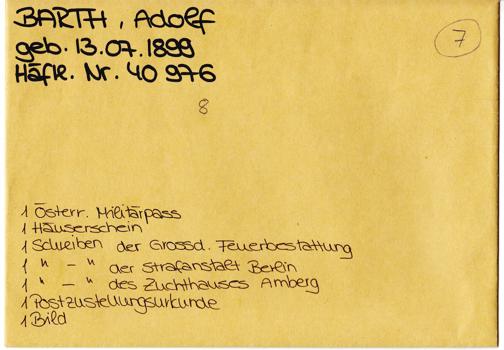 BARTH, Adolf
geb. 13.07.1899
Häftl. Nr. 40 976
7
8
1 Österr. Militärpass
1 Häuserschein
1 Schreiben der Grossd. Feuerbestattung
1 " - " der Strafanstalt Berlin
1 " - " des Zuchthauses Amberg
1 Postzustellungsurkunde
1 Bild